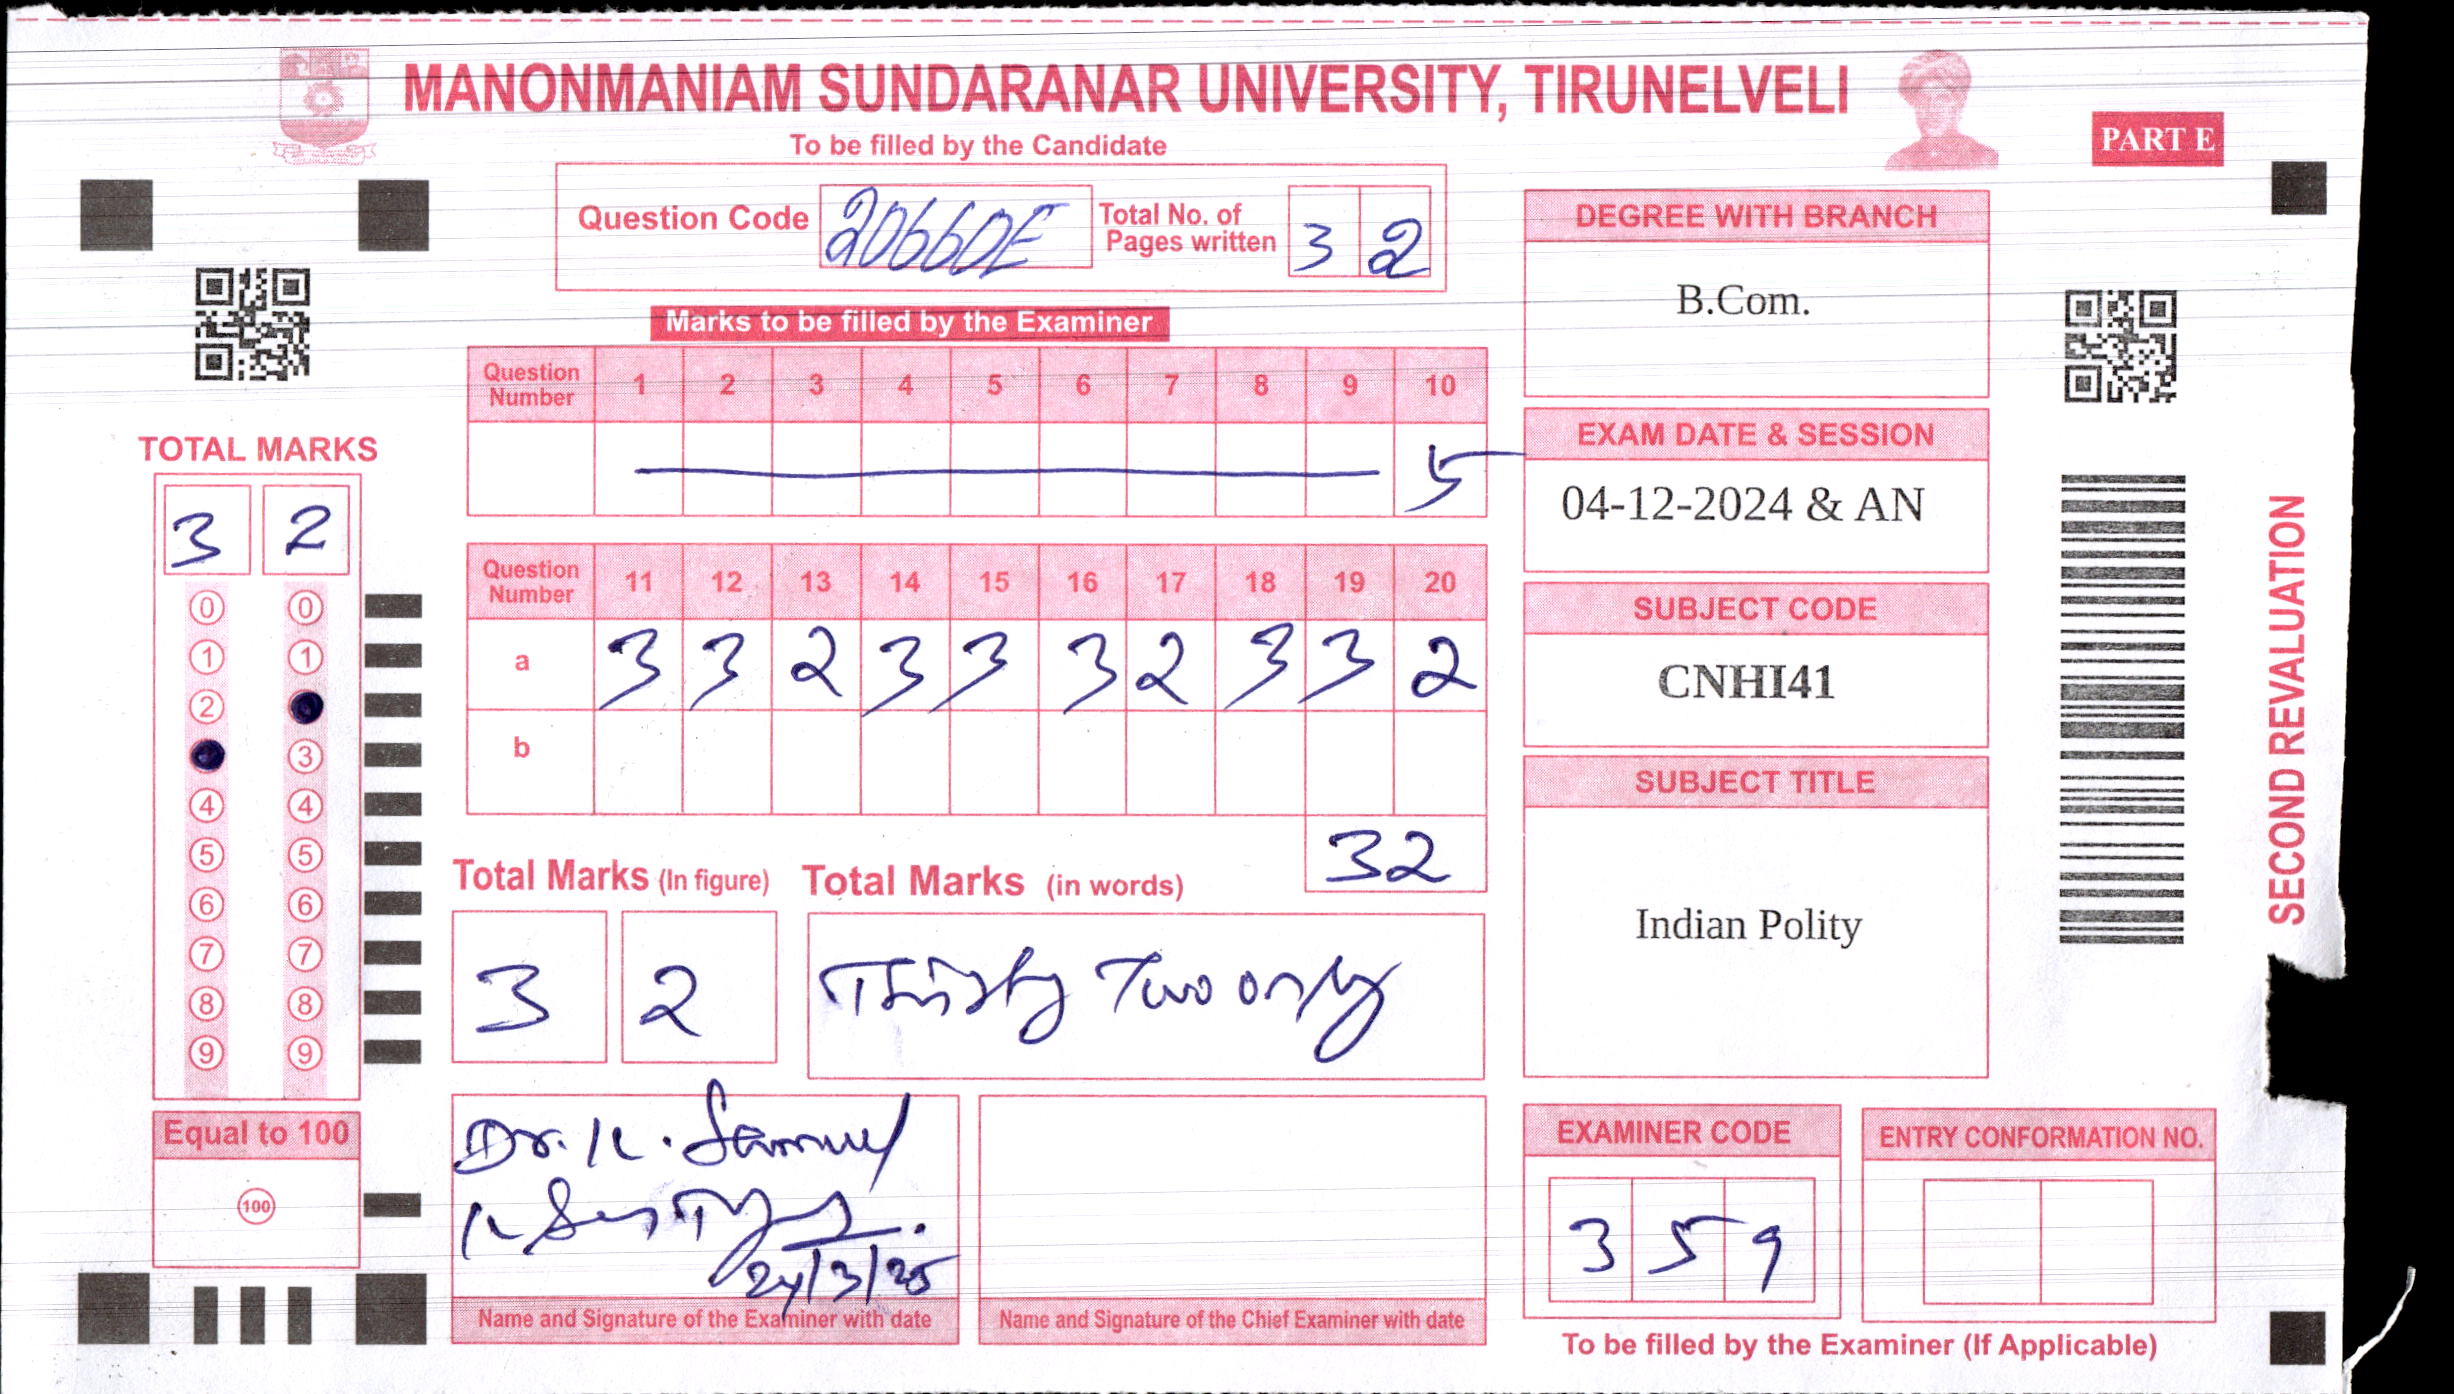 MANONMANIAM SUNDARANAR UNIVERSITY, TIRUNELVELI
PART E
To be filled by the Candidate
Question Code 20660E Total No. of Pages written 3 2
Marks to be filled by the Examiner
Question Number 1 2 3 4 5 6 7 8 9 10
5
Question Number 11 12 13 14 15 16 17 18 19 20
a 3 3 2 3 3 3 2 3 3 2
b
32
Total Marks (In figure) Total Marks (in words)
3 2 Thirty Two only
TOTAL MARKS
3 2
0 0
1 1
2
3
4 4
5 5
6 6
7 7
8 8
9 9
Equal to 100
100
Dr. K. Samuel
24/3/25
Name and Signature of the Examiner with date
Name and Signature of the Chief Examiner with date
DEGREE WITH BRANCH
B.Com.
EXAM DATE & SESSION
04-12-2024 & AN
SUBJECT CODE
CNHI41
SUBJECT TITLE
Indian Polity
EXAMINER CODE
3 5 9
ENTRY CONFORMATION NO.
To be filled by the Examiner (If Applicable)
SECOND REVALUATION